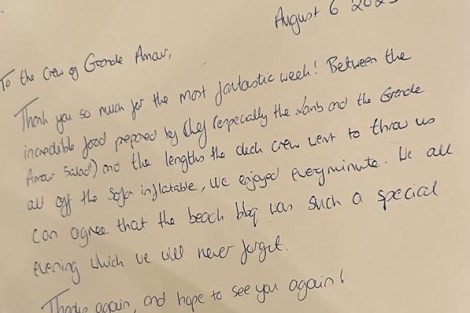 August 6 2023
To the crew of Grande Amour,
Thank you so much for the most fantastic week! Between the
incredible food prepared by Chef (especially the lamb and the Grande
Amour Salad") and the lengths the deck crew went to throw us
all off the sofa inflatable, we enjoyed every minute. We all
can agree that the beach bbq was such a special
evening which we will never forget.
Thanks again, and hope to see you again!